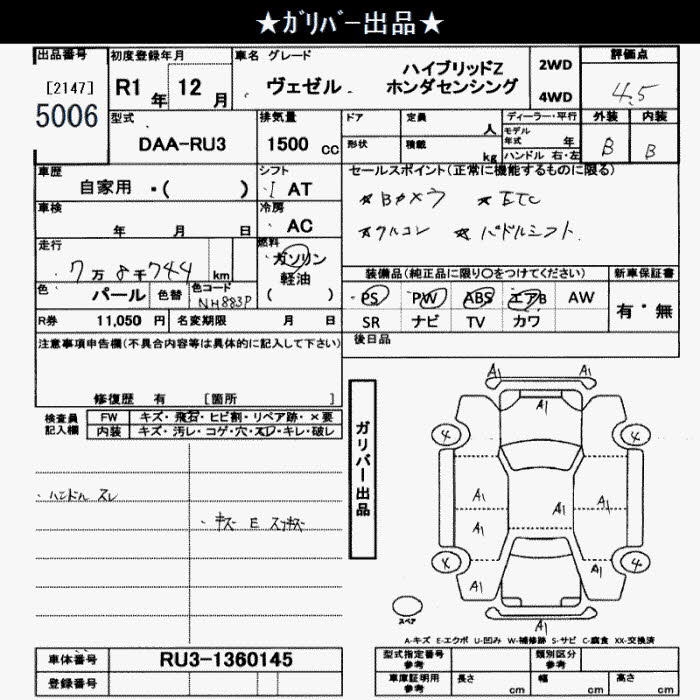 ★ガリバー出品★
出品番号 初度登録年月 車名 グレード 評価点
[2147] R1 年 12 月 ヴェゼル ハイブリッドZ 2WD 4.5
5006 ホンダセンシング 4WD
型式 排気量 ドア 定員 人 ディーラー・平行 外装 内装
DAA-RU3 1500 cc 形状 積載 kg モデル年式 年 B B
ハンドル 右・左
車歴 シフト セールスポイント(正常に機能するものに限る)
自家用 ・( ) AT ★Bカメラ ★ETC
車検 冷房
年 月 日 AC ★フルコレ ★パドルシフト
走行 燃料
7万8千744 km ガソリン 装備品(純正品に限り○をつけてください) 新車保証書
色 パール 色替 色コード NH883P 軽油 ( ) PS PW ABS エアB AW 有・無
R券 11,050 円 名変期限 月 日 SR ナビ TV カワ
注意事項申告欄(不具合内容等は具体的に記入して下さい) 後日品
修復歴 有 [箇所 ]
検査員記入欄 FW キズ・飛石・ヒビ割・リペア跡・×要
内装 キズ・汚レ・コゲ・穴・スレ・キレ・破レ
ガリバー出品
A1 A1
A1
4 4
A1 A1 A1
ハンドル スレ
キズ E スリキズ
A1
4
A1 A1
スペア
A1
A-キズ E-エクボ U-凹み W-補修跡 S-サビ C-腐食 XX-交換済
車体番号 RU3-1360145 型式指定番号 参考 類別区分 参考
登録番号 車庫証明用 参考 長さ cm 幅 cm 高さ cm